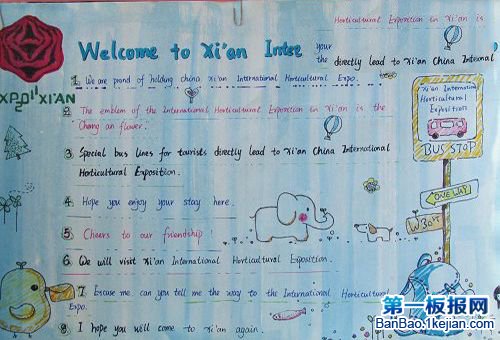 Horticultural Exposition in Xi'an is
your
Welcome to Xi'an Inter
the directly lead to Xi'an China International
1. We are proud of holding China Xi'an International Horticultural Expo.
2. The emblem of the International Horticultural Exposition in Xi'an is the
Chang'an flower.
3. Special bus lines for tourists directly lead to Xi'an China International
Horticultural Exposition.
4. Hope you enjoy your stay here.
5. Cheers to our friendship!
6. We will visit Xi'an International Horticultural Exposition.
7. Excuse me, can you tell me the way to the International Horticultural
Expo.
8. I hope you will come to Xi'an again.
XI'AN
Xi'an International
Horticultural
Exposition
BUS STOP
ONE WAY
第一板报网
BanBao.1kejian.com